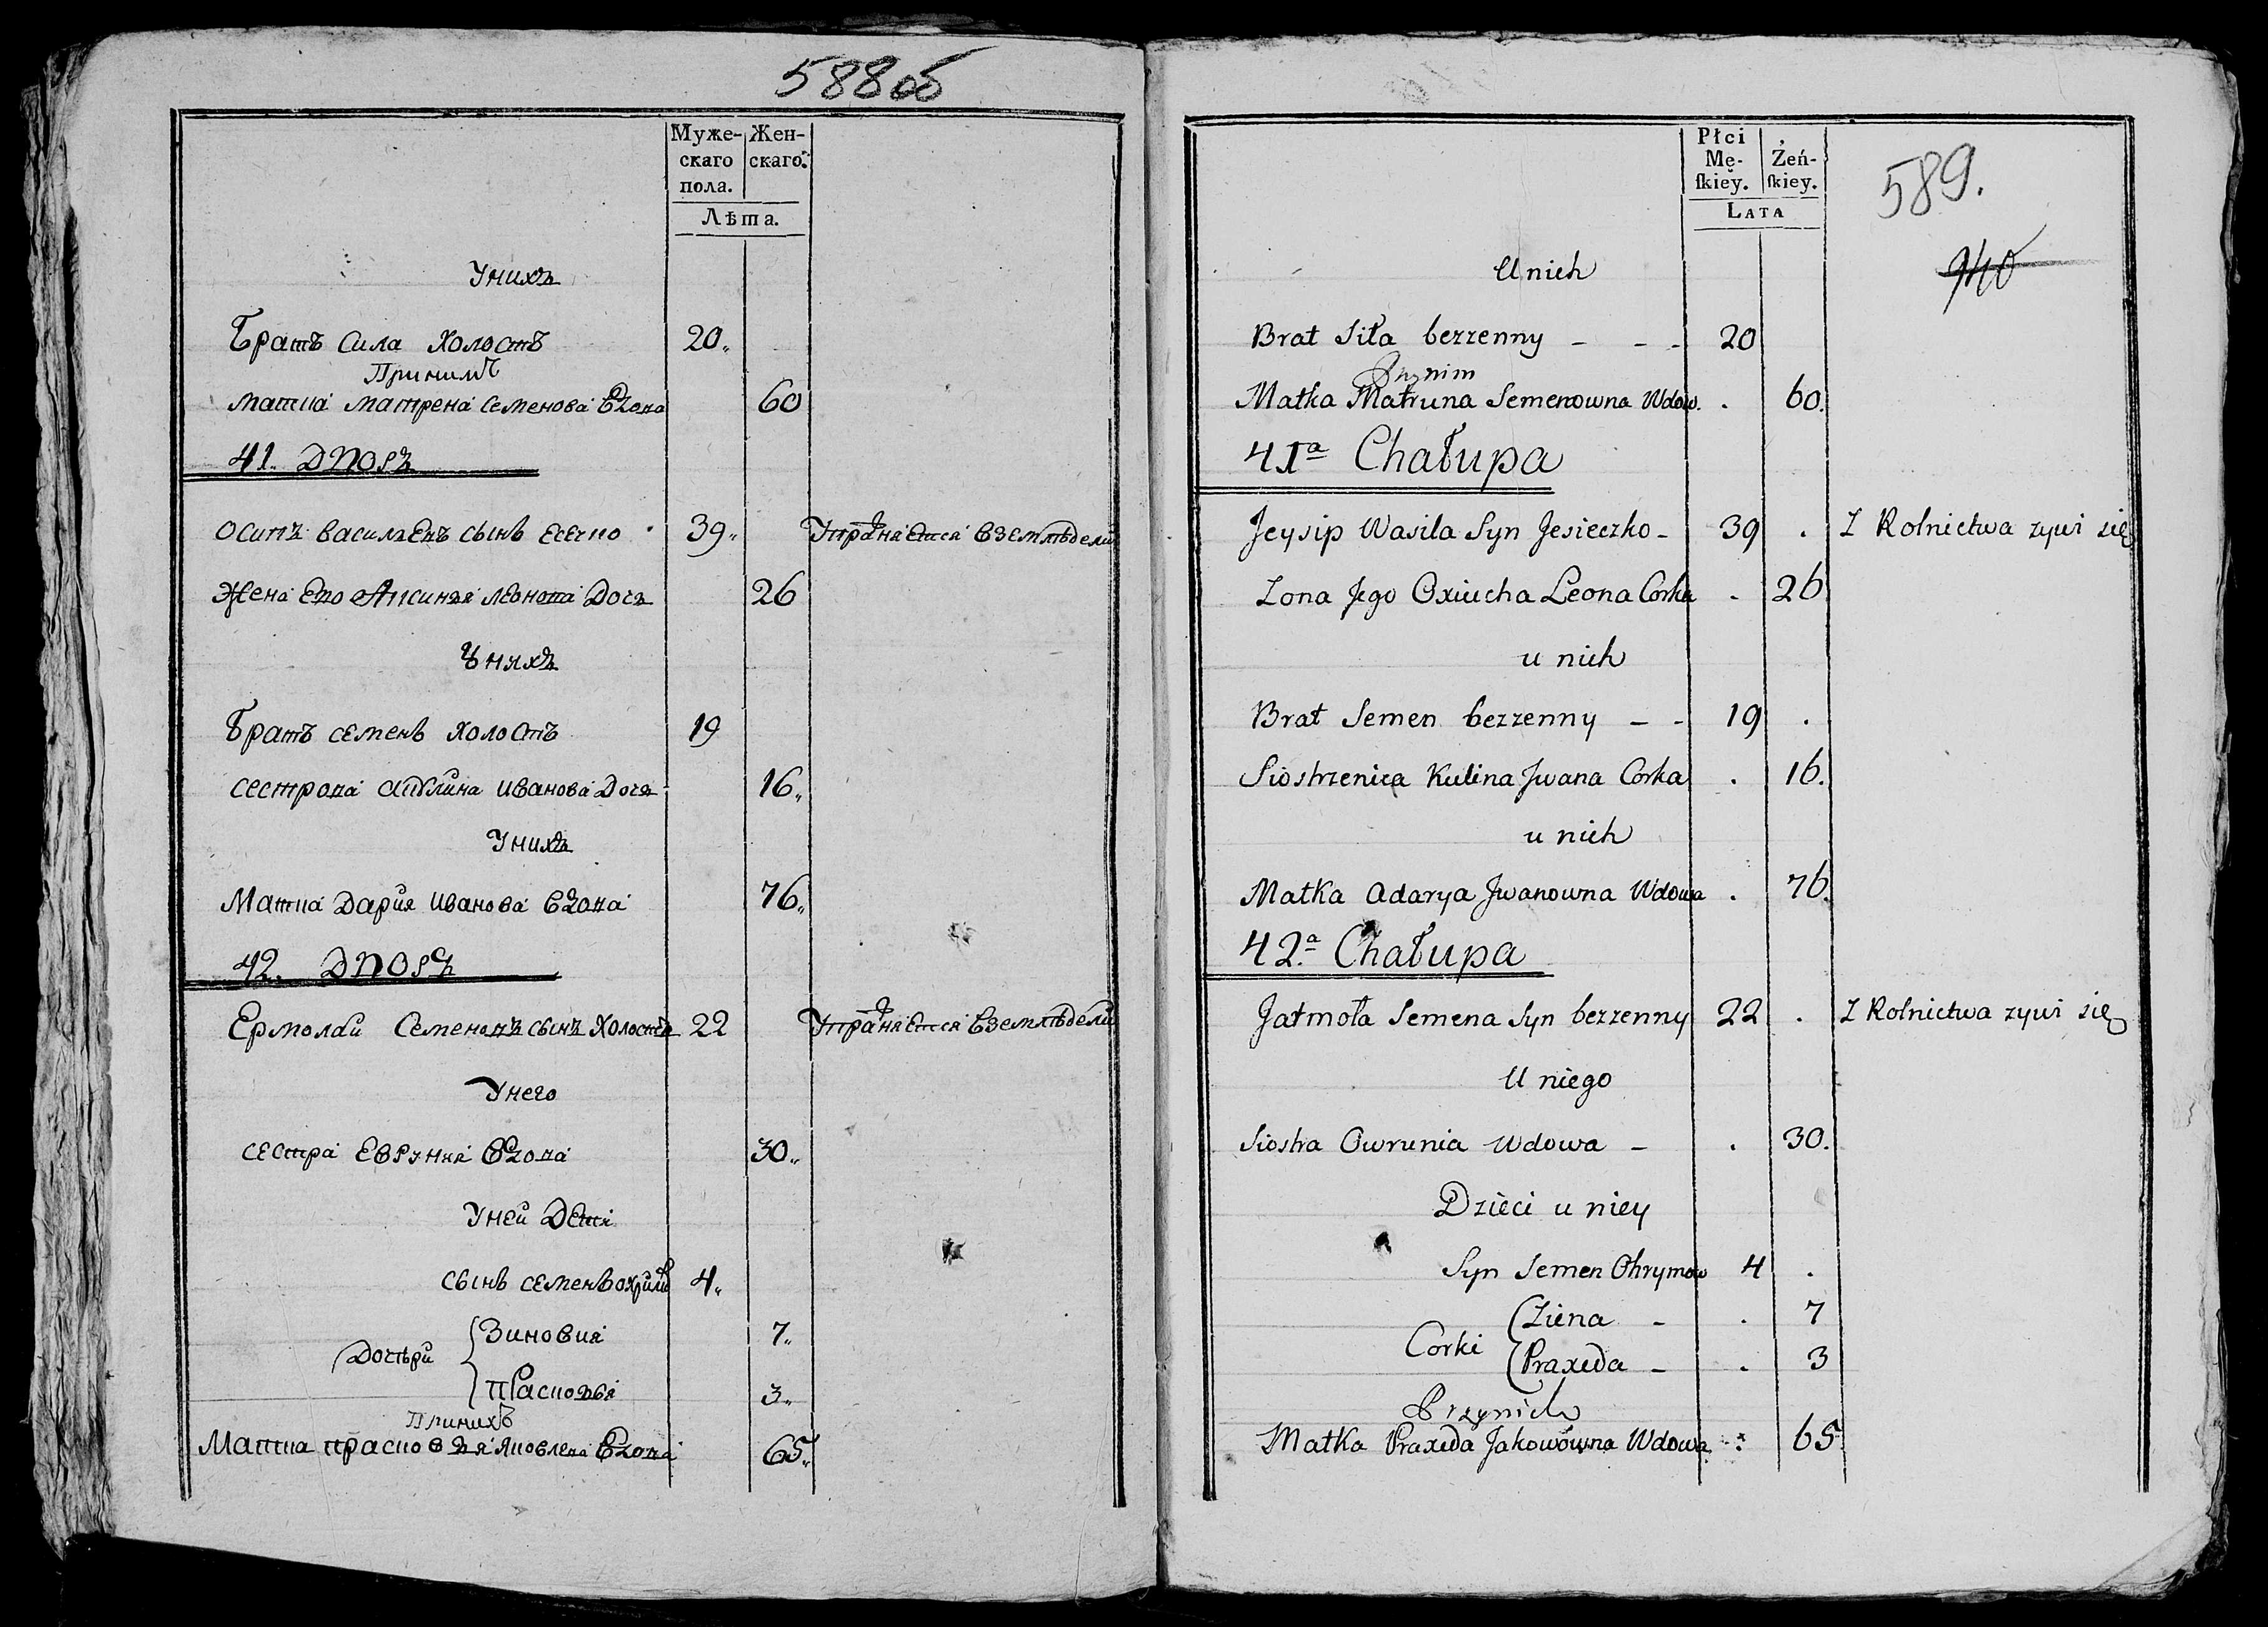 588 об
Муже- Жен-
скаго скаго.
пола.
Лѣта.
Унихъ
Братъ Сила Холостъ 20
Принимъ
матка матрена Семенова вдова 60
41. Дворъ
Осипъ васильевъ сынъ есечко 39 упражняется вземлѣделии
жена его Аксинья леонова Дочь 26
Унихъ
Братъ семенъ холостъ 19
сестрона акулина иванова Дочь 16
Унихъ
Матка Дария иванова вдова 76
42. Дворъ
Ермолай Семеновъ сынъ Холостъ 22 упражняется вземлѣделии
Унего
сестра Евруния вдова 30
Уней Дети
сынъ семенъ охримовъ 4
Дочери Зиновия 7
Прасковья 3
Принихъ
Матка прасковья Яковлева вдова 65
Płci
Mę- Żeń-
ſkiey. ſkiey.
LATA
589.
940
U nich
Brat Siła bezzenny - - - 20
Przynim
Matka Matruna Semenowna Wdow. . 60.
41ª Chałupa
Jeysip Wasila Syn Jesieczko - 39 . Z Rolnictwa zywi się
Zona Jego Oxiucha Leona Corka . 26
u nich
Brat Semen bezzenny - - 19 .
Siostrzenica Kulina Jwana Corka . 16.
u nich
Matka Adarya Jwanowna Wdowa . 76.
42.ª Chałupa
Jatmoła Semena Syn bezzenny 22 . Z Rolnictwa zywi się
U niego
Siostra Owrunia Wdowa - . 30.
Dzieci u niey
Syn Semen Ohrymow 4 .
Corki Ziena - . 7
Praxeda - . 3
Przynich
Matka Praxeda Jakowówna Wdowa . 65